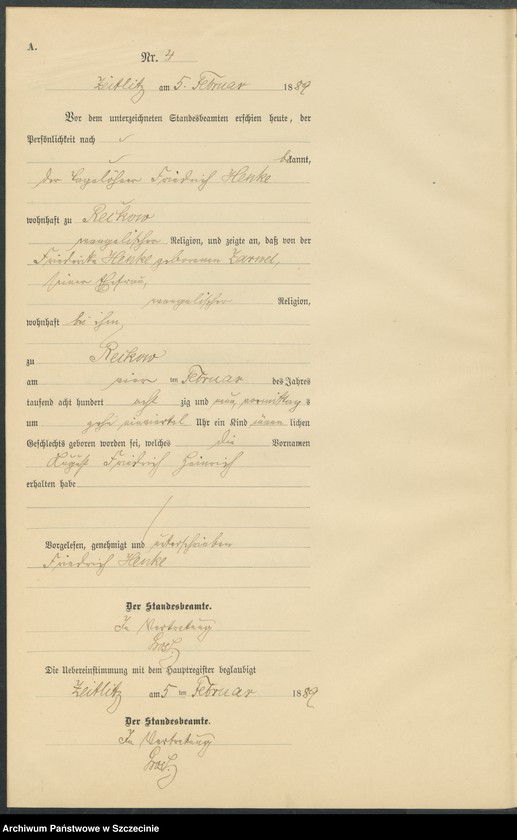 A.
Nr. 4
Zeitlitz am 5. Februar 1889
Vor dem unterzeichneten Standesbeamten erschien heute, der
Persönlichkeit nach
bekannt,
der Tagelöhner Friedrich Henke
wohnhaft zu Reikow
evangelischer Religion, und zeigte an, daß von der
Friedericke Henke geborenen Zarwel,
seiner Ehefrau,
evangelischer Religion,
wohnhaft bei ihm,
zu Reikow
am vier ten Februar des Jahres
tausend acht hundert acht zig und neun, vormittag s
um Uhr ein Kind männ lichen
Geschlechts geboren worden sei, welches die Vornamen
August Friedrich Heinrich
erhalten habe
Vorgelesen, genehmigt und unterschrieben
Friedrich Henke
Der Standesbeamte.
In Vertretung
Die Uebereinstimmung mit dem Hauptregister beglaubigt
Zeitlitz am 5 ten Februar 1889
Der Standesbeamte.
In Vertretung
Archiwum Państwowe w Szczecinie